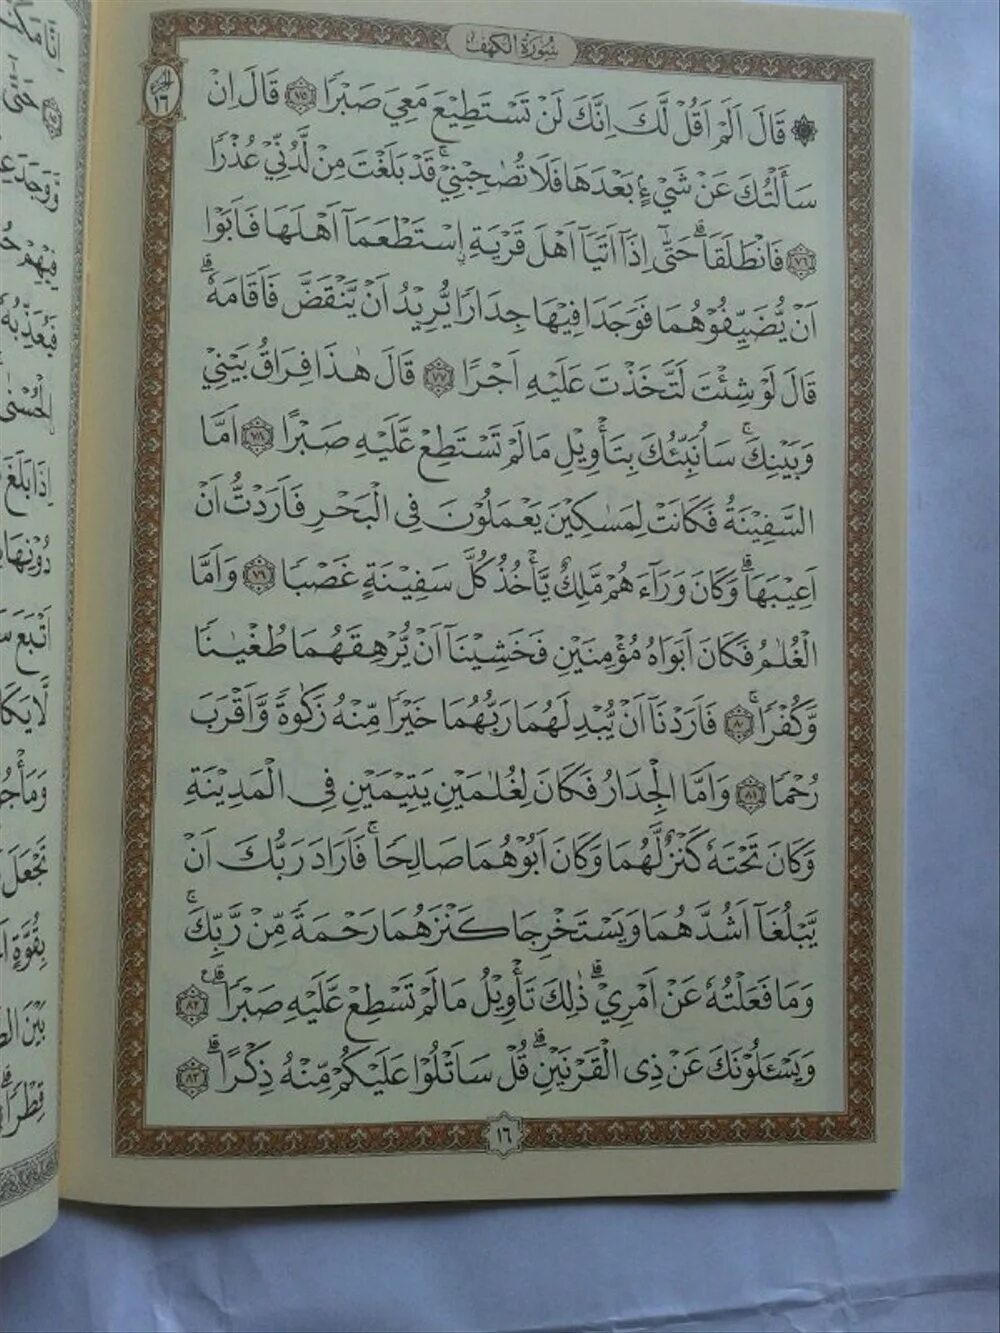 سُورَةُ الكَهْفِ
الجزء ١٦
۞ قَالَ اَلَمْ اَقُلْ لَّكَ اِنَّكَ لَنْ تَسْتَطِيْعَ مَعِيَ صَبْرًا ٧٥ قَالَ اِنْ
سَاَلْتُكَ عَنْ شَيْءٍۢ بَعْدَهَا فَلَا تُصٰحِبْنِيْۚ قَدْ بَلَغْتَ مِنْ لَّدُنِّيْ عُذْرًا
٧٦ فَانْطَلَقَاۗ حَتّٰىٓ اِذَآ اَتَيَآ اَهْلَ قَرْيَةِ ِۨاسْتَطْعَمَآ اَهْلَهَا فَاَبَوْا
اَنْ يُّضَيِّفُوْهُمَا فَوَجَدَا فِيْهَا جِدَارًا يُّرِيْدُ اَنْ يَّنْقَضَّ فَاَقَامَهٗۗ
قَالَ لَوْ شِئْتَ لَتَّخَذْتَ عَلَيْهِ اَجْرًا ٧٧ قَالَ هٰذَا فِرَاقُ بَيْنِيْ
وَبَيْنِكَۚ سَاُنَبِّئُكَ بِتَأْوِيْلِ مَا لَمْ تَسْتَطِعْ عَّلَيْهِ صَبْرًا ٧٨ اَمَّا
السَّفِيْنَةُ فَكَانَتْ لِمَسٰكِيْنَ يَعْمَلُوْنَ فِى الْبَحْرِ فَاَرَدْتُّ اَنْ
اَعِيْبَهَاۗ وَكَانَ وَرَاۤءَهُمْ مَّلِكٌ يَّأْخُذُ كُلَّ سَفِيْنَةٍ غَصْبًا ٧٩ وَاَمَّا
الْغُلٰمُ فَكَانَ اَبَوَاهُ مُؤْمِنَيْنِ فَخَشِيْنَآ اَنْ يُّرْهِقَهُمَا طُغْيٰنًا
وَّكُفْرًاۚ ٨٠ فَاَرَدْنَآ اَنْ يُّبْدِلَهُمَا رَبُّهُمَا خَيْرًا مِّنْهُ زَكٰوةً وَّاَقْرَبَ
رُحْمًا ٨١ وَاَمَّا الْجِدَارُ فَكَانَ لِغُلٰمَيْنِ يَتِيْمَيْنِ فِى الْمَدِيْنَةِ
وَكَانَ تَحْتَهٗ كَنْزٌ لَّهُمَا وَكَانَ اَبُوْهُمَا صَالِحًاۚ فَاَرَادَ رَبُّكَ اَنْ
يَّبْلُغَآ اَشُدَّهُمَا وَيَسْتَخْرِجَا كَنْزَهُمَا رَحْمَةً مِّنْ رَّبِّكَۚ
وَمَا فَعَلْتُهٗ عَنْ اَمْرِيْۗ ذٰلِكَ تَأْوِيْلُ مَا لَمْ تَسْطِعْ عَّلَيْهِ صَبْرًاۗ ࣖ ٨٢
وَيَسْـَٔلُوْنَكَ عَنْ ذِى الْقَرْنَيْنِۗ قُلْ سَاَتْلُوْا عَلَيْكُمْ مِّنْهُ ذِكْرًاۗ ٨٣
١٦